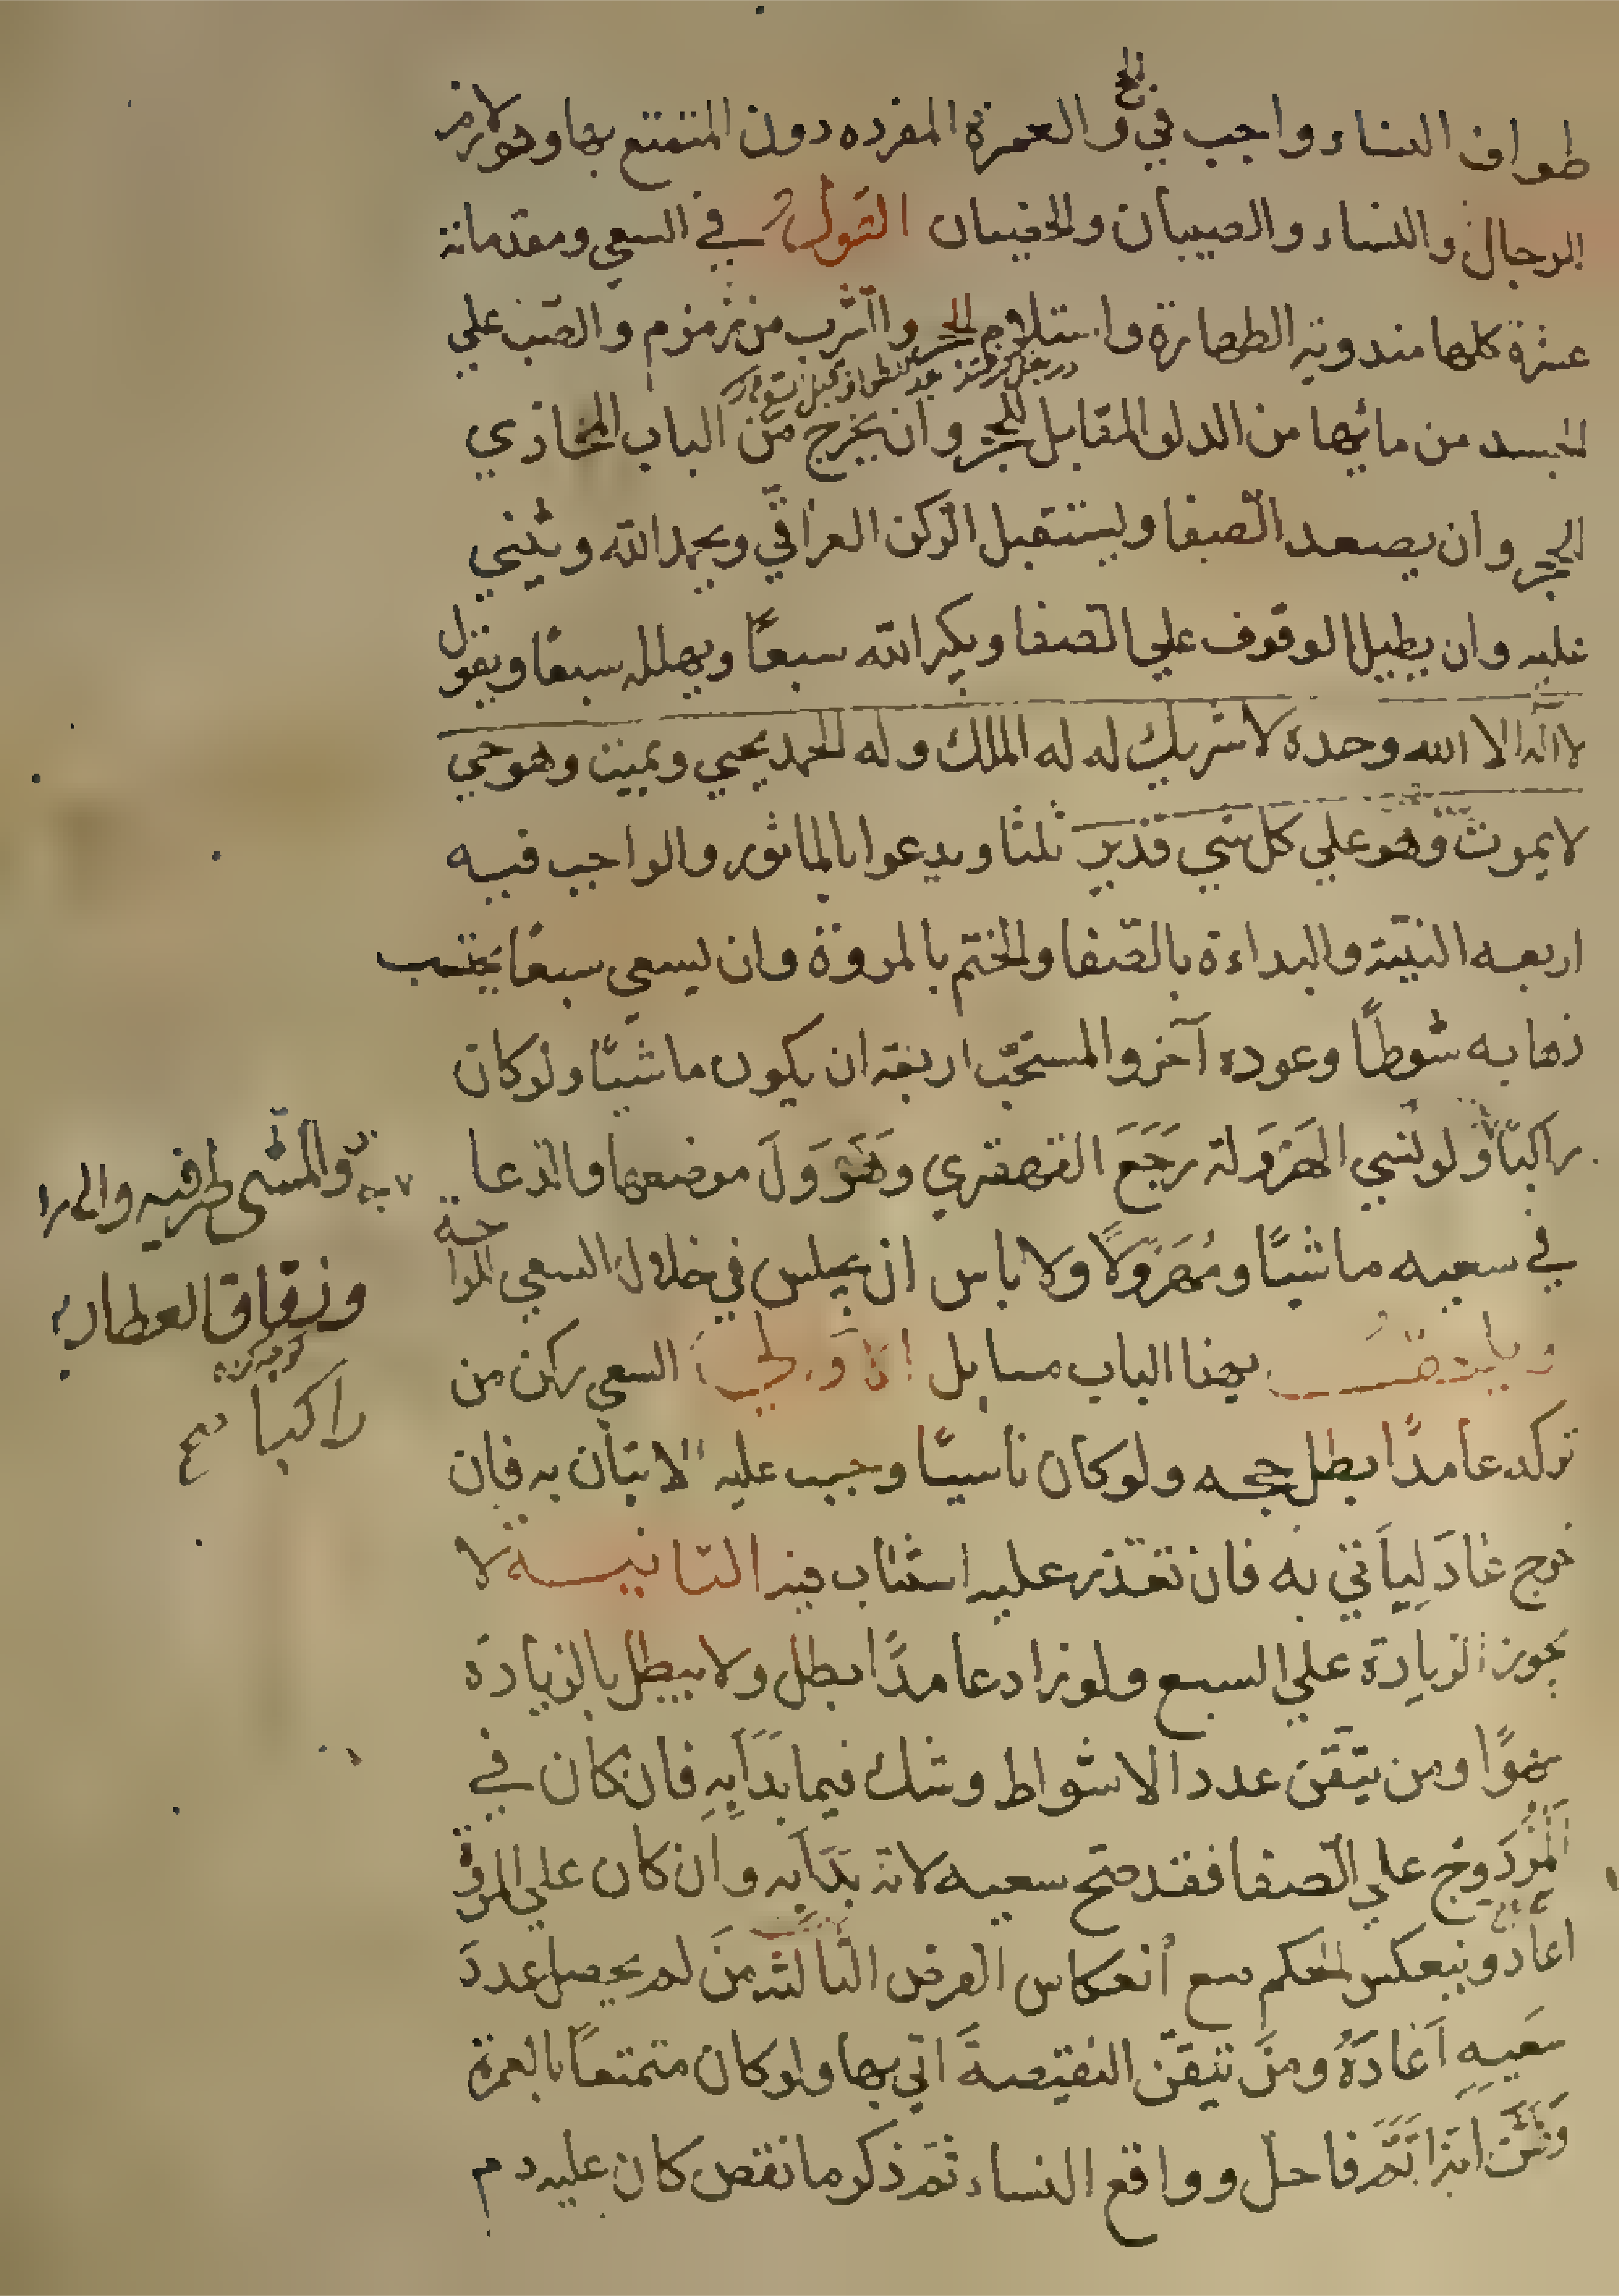 طواف النساء واجب في الحج والعمرة المفرده دون المتمتع بها وهو لازم
للرجال والنساء والصبيان والخصيان القول في السعي ومقدماته
عشرة كلها مندوبة الطهارة واستلام الحجر والشرب من زمزم والصب علي
الجسد من مائها من الدلو المقابل للحجر وان يخرج من الباب المحاذي
للحجر وان يصعد الصفا ويستقبل الركن العراقي ويحمد الله ويثني
عليه وان يطيل الوقوف علي الصفا ويكبر الله سبعًا ويهلله سبعًا ويقول
لا اله الا الله وحده لا شريك له له الملك وله الحمد يحيي ويميت وهو حي
لا يموت وهو علي كل شي قدير ثلثا ويدعوا بالماثور والواجب فيه
اربعه النيّة والبداءة بالصّفا والختم بالمروة وان يسعي سبعًا يحتسب
ذهابه شوطًا وعوده آخر والمستحبّ اربعة ان يكون ماشيًا ولو كان
راكبًا ولو نسي الهَرْوَلة رَجَعَ القهقري وهَرْوَلَ موضعها والدعا
في سعيه ماشيًا ومُهَرْوِلًا ولا باس ان يجلس في خلال السعي للراحة
ويلحق بهذا الباب مسايل الاولي السعي ركن من
تركه عامدًا بطل حجه ولو كان ناسيًا وجب عليه الاتيان به فان
خرج عادَ لِيأتي به فان تعذّر عليه استناب فيه الثانيه لا
يجوز الزيادة علي السبع ولو زاد عامدًا بطل ولا يبطل بالزيادة
سهوًا ومن تيقّن عدد الاشواط وشك فيما بَدَأ بِهِ فان كان في
المُزْدَوِج علي الصفا فقد صح سعيه لانه بَدَأ به وان كان علي المروة
اعاد وينعكس الحكم مع انعكاس الفرض الثالثه مَن لم يحصل عددَ
سَعيِهِ اَعادَهُ ومَن تيقّن النقيصةَ اتي بها ولو كان متمتعًا بالعمرة
وظنّ انه اتمّ فاحل وواقع النساء ثم ذكر ما نقص كان عليه دم
والمشي طرفيه
وزقاق العطارين
راكبا صح